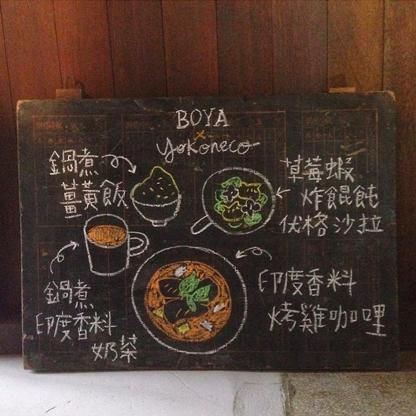 BOYA
×
yokoneco
鍋煮
薑黃飯
草莓蝦
炸餛飩
优格沙拉
鍋煮
印度香料
奶茶
印度香料
烤雞咖哩